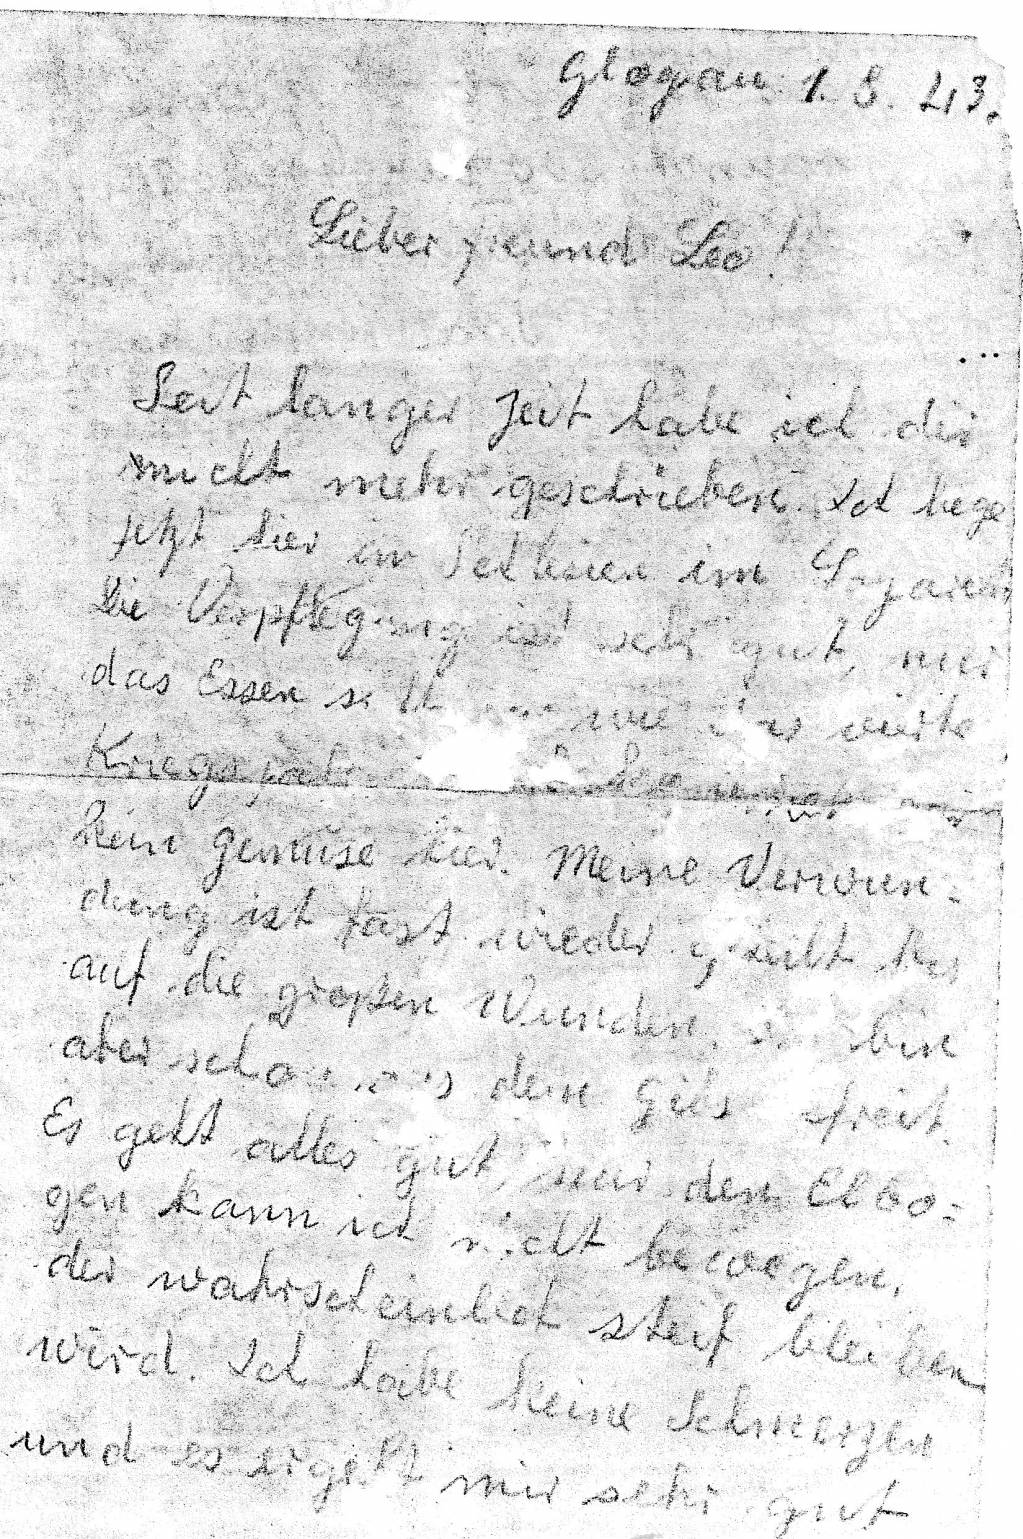 Glogau 1. 8. 43.
Lieber freund Leo!
Seit langer Zeit habe ich dir
nicht mehr geschrieben. Ich liege
jetzt hier in Schlesien im Lazarett
Die Verpflegung ist sehr gut, nur
das Essen wie das vierte
Kriegsjahr
kein gemüse hier. Meine Verwun=
dung ist fast wieder geheilt bis
auf die großen Wunden, bin
aber schon aus dem Gibs freit.
Es geht alles gut, nur den Elbo=
gen kann ich nicht bewegen,
der wahrscheinlich steif bleiben
wird. Ich habe keine Schmerzen
und es ergeht mir sehr gut